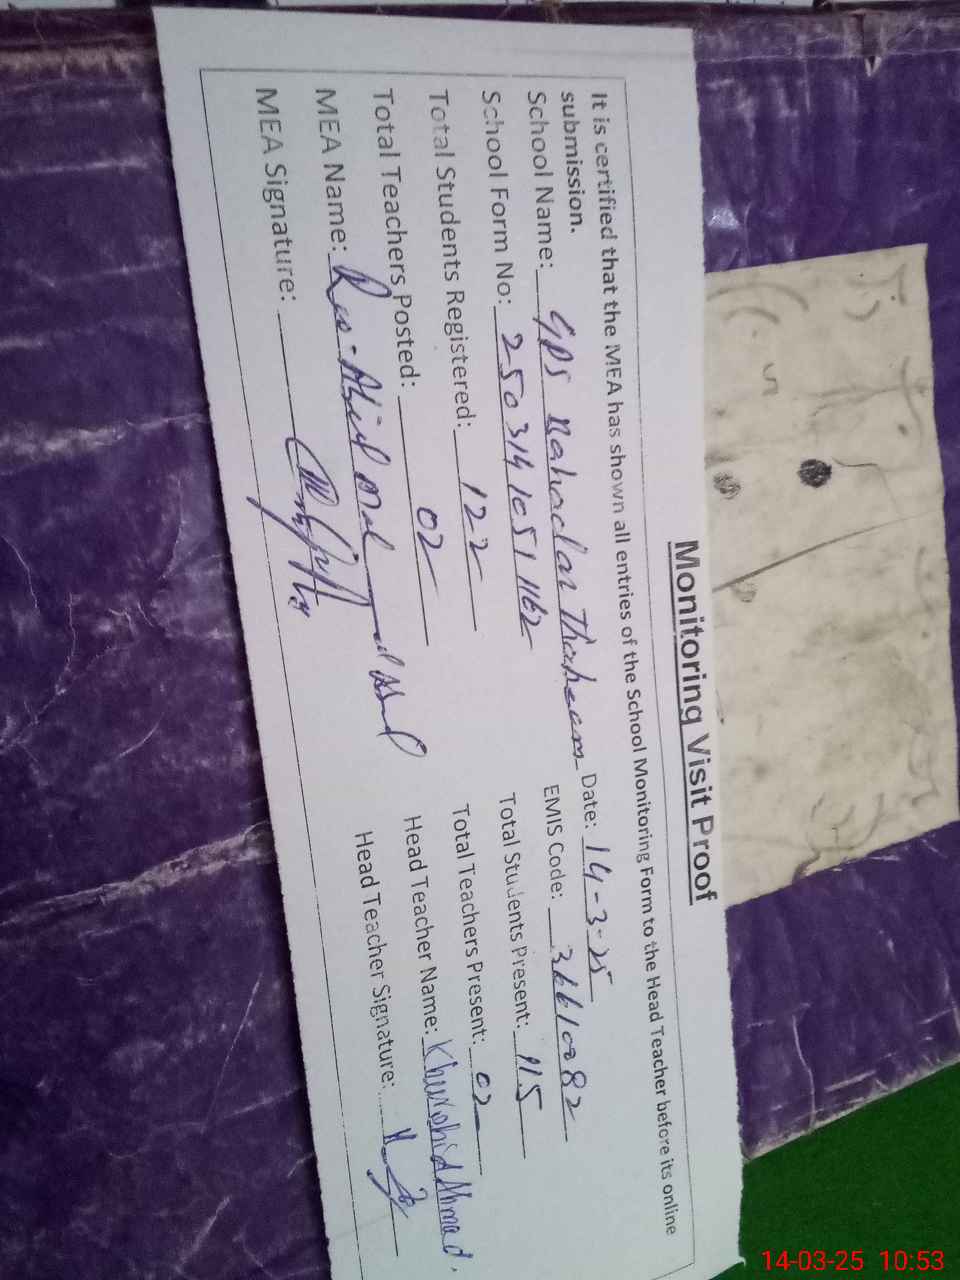 Monitoring Visit Proof
It is certified that the MEA has shown all entries of the School Monitoring Form to the Head Teacher before its online
submission.
School Name: GPS Date: 14-3-25
School Form No: 2503141051162 EMIS Code: 36610082
Total Students Registered: 122 Total Students Present: 115
Total Teachers Posted: 02 Total Teachers Present: 02
MEA Name: Rao Abid Head Teacher Name: Khurshid Ahmad.
MEA Signature: Head Teacher Signature:
14-03-25 10:53